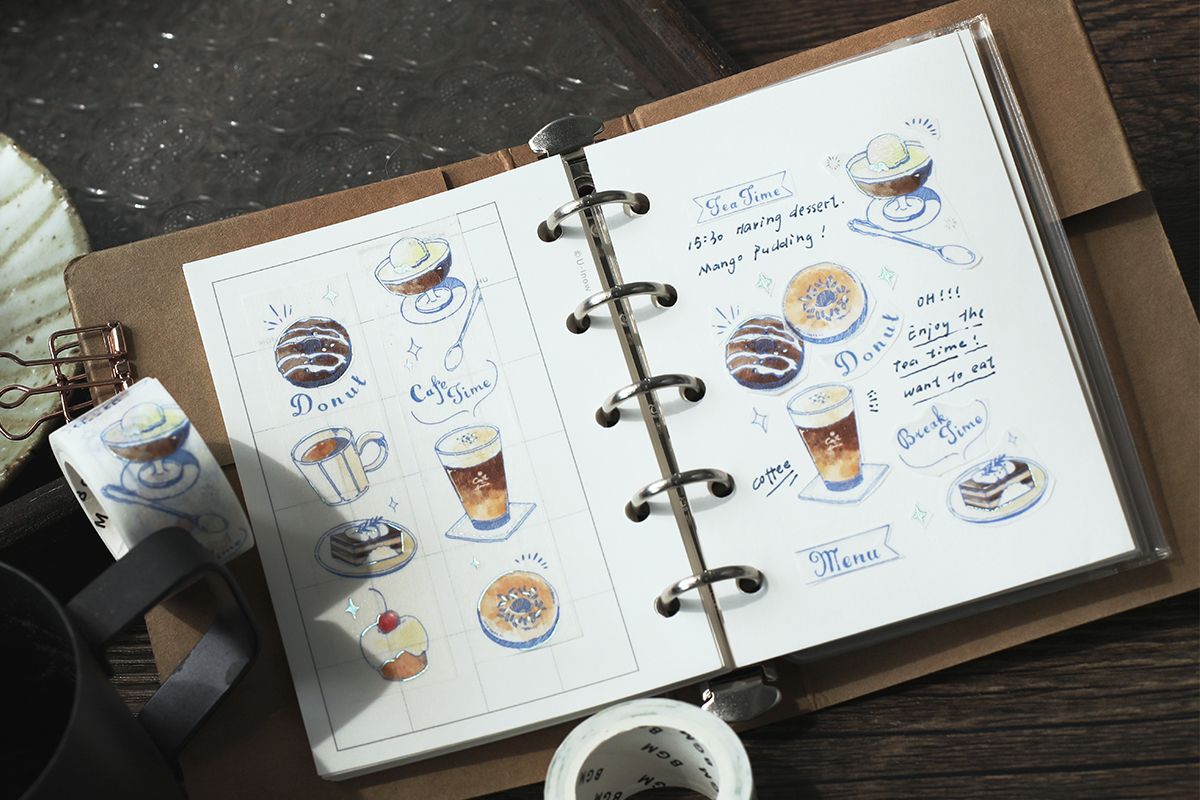 Donut
Cafe
Time
Cafe
©U-Know
Tea Time
15:30 Having dessert.
Mango Pudding!
Donut
OH!!!
Enjoy the
Tea time!
want to eat
Cafe
coffee
Break
Time
Menu
BGM
BGM
BGM
BGM